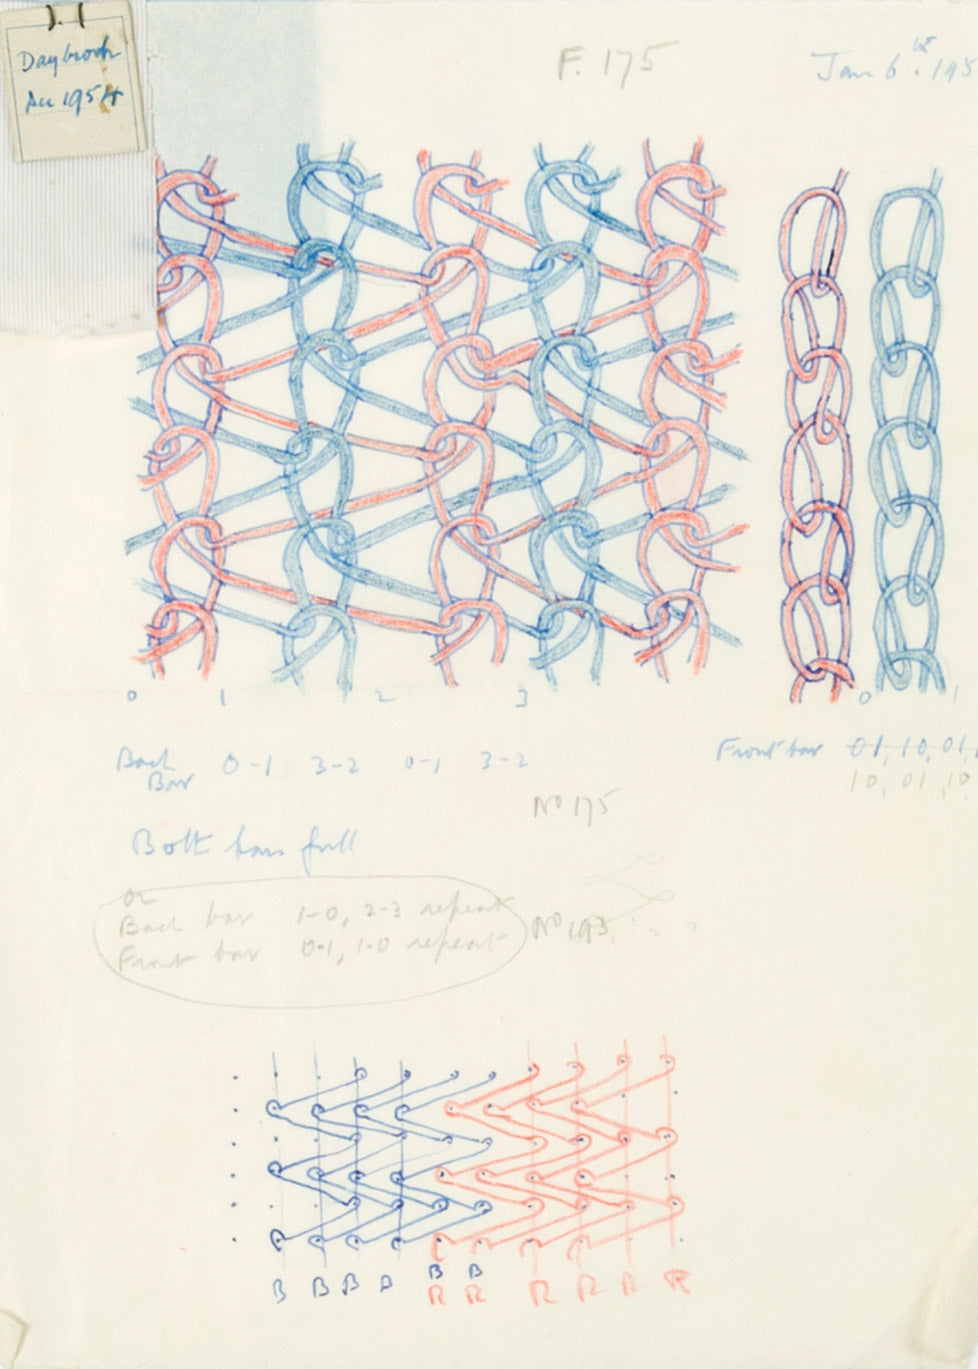 Daybrook
Dec 1954
F. 175
Jan 6
0 1 2 3
0 1
Back 0-1 3-2 0-1 3-2
Bar
Front bar 01, 10, 01,
10, 01, 10,
No 175
Both bars full
or
Back bar 1-0, 2-3 repeat
Front bar 0-1, 1-0 repeat
No 193
B B B B B B
R R R R R R